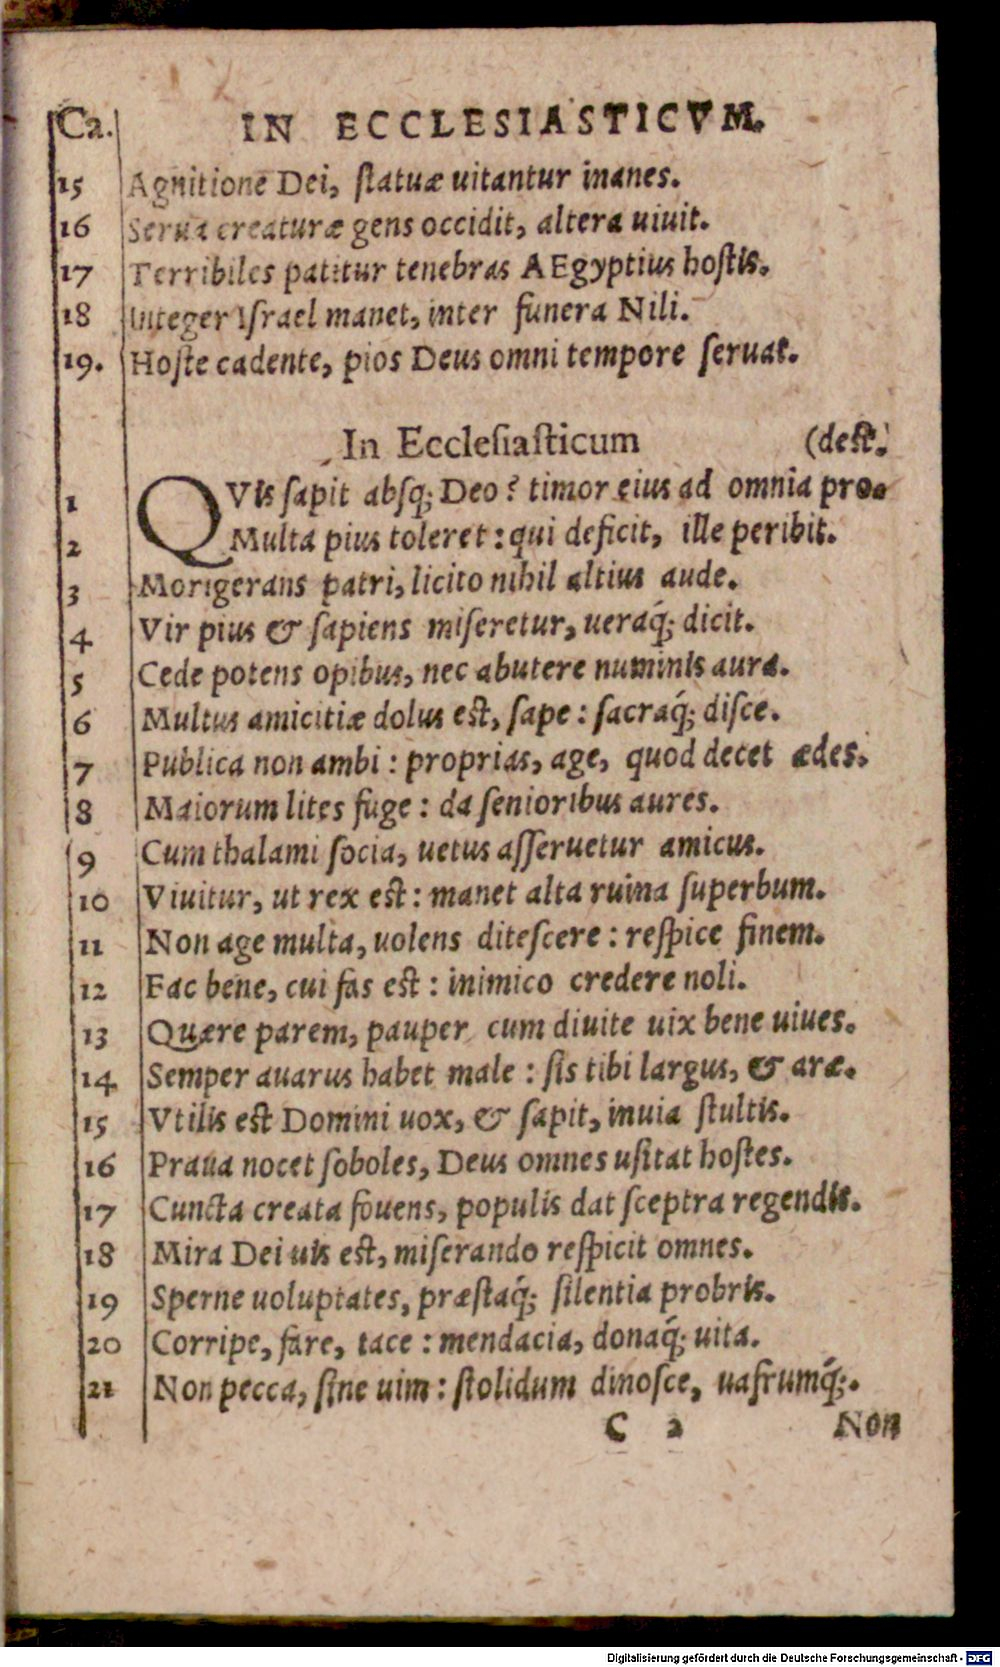 Ca. IN ECCLESIASTICVM.
15 Agnitione Dei, ſtatuæ uitantur inanes.
16 Serua creaturæ gens occidit, altera uiuit.
17 Terribiles patitur tenebras AEgyptius hoſtis.
18 Integer Iſrael manet, inter funera Nili.
19. Hoſte cadente, pios Deus omni tempore ſeruat.
In Eccleſiaſticum (deſt.
1 QVis ſapit abſq; Deo? timor eius ad omnia pro-
2 Multa pius toleret: qui deficit, ille peribit.
3 Morigerans patri, licito nihil altius aude.
4 Vir pius & ſapiens miſeretur, ueraq́; dicit.
5 Cede potens opibus, nec abutere numinis aura.
6 Multus amicitiæ dolus eſt, ſape: ſacraq́; diſce.
7 Publica non ambi: proprias, age, quod decet ædes.
8 Maiorum lites fuge: da ſenioribus aures.
9 Cum thalami ſocia, uetus aſſeruetur amicus.
10 Viuitur, ut rex eſt: manet alta ruina ſuperbum.
11 Non age multa, uolens diteſcere: reſpice finem.
12 Fac bene, cui fas eſt: inimico credere noli.
13 Quære parem, pauper cum diuite uix bene uiues.
14 Semper auarus habet male: ſis tibi largus, & aræ.
15 Vtilis eſt Domini uox, & ſapit, inuia ſtultis.
16 Praua nocet ſoboles, Deus omnes uſitat hoſtes.
17 Cuncta creata fouens, populis dat ſceptra regendis.
18 Mira Dei uis eſt, miſerando reſpicit omnes.
19 Sperne uoluptates, præſtaq́; ſilentia probris.
20 Corripe, fare, tace: mendacia, donaq́; uita.
21 Non pecca, ſine uim: ſtolidum dinoſce, uafrumq́;.
C 2 Non
Digitalisierung gefördert durch die Deutsche Forschungsgemeinschaft - DFG